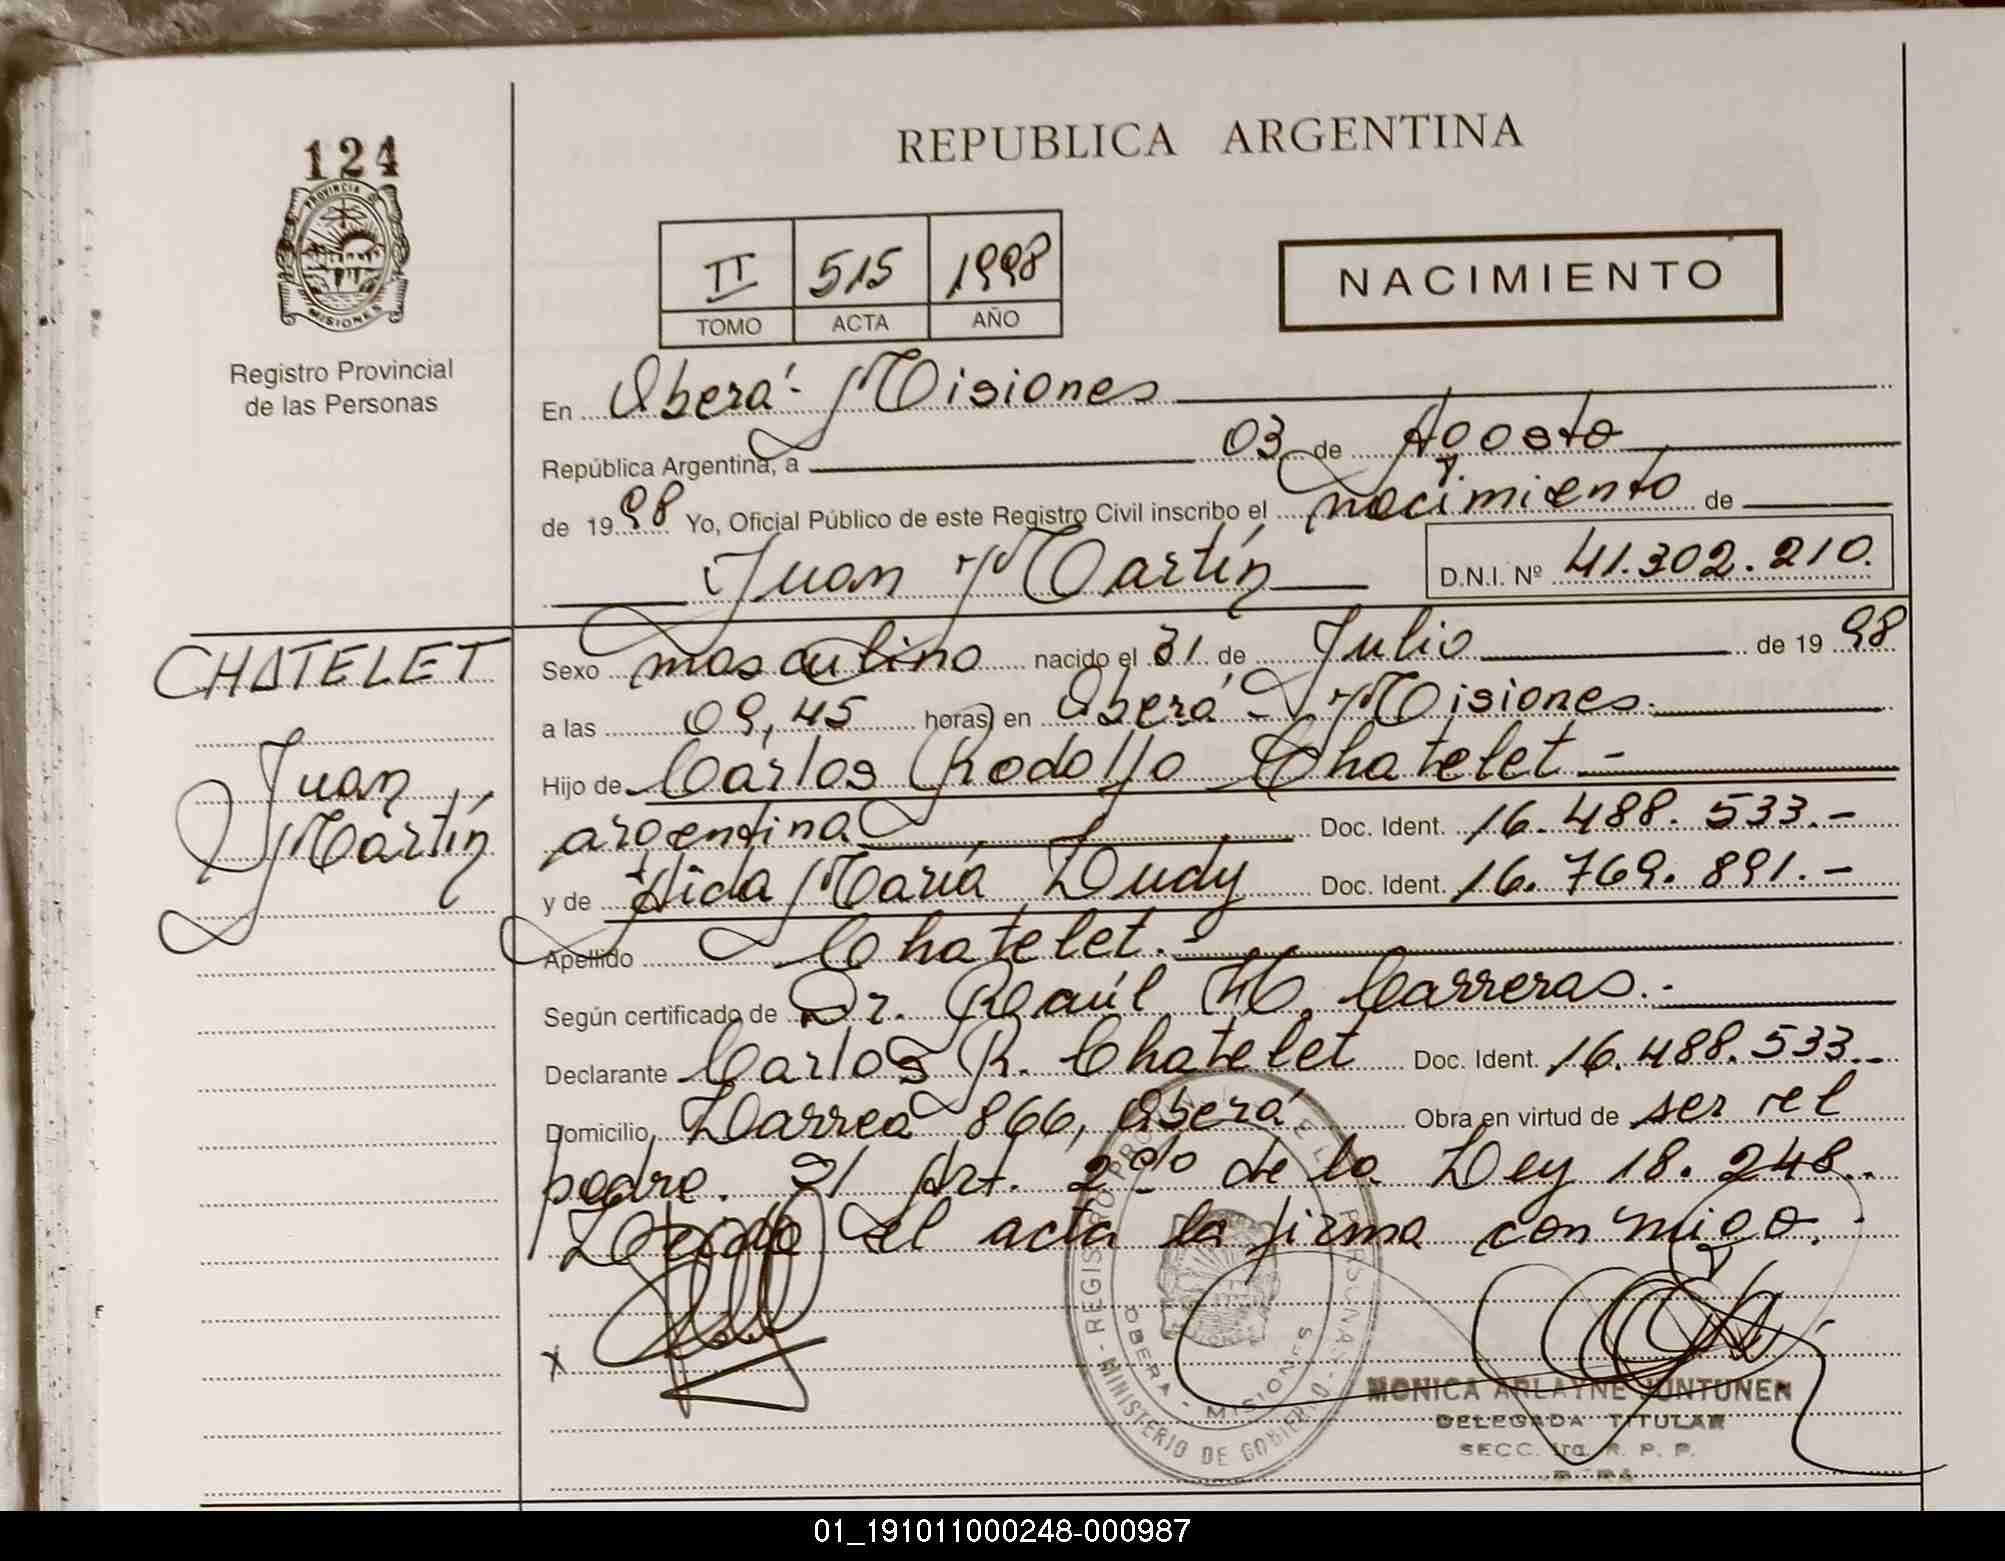 124
PROVINCIA DE
MISIONES
Registro Provincial
de las Personas
REPUBLICA ARGENTINA
II 515 1998
TOMO ACTA AÑO
NACIMIENTO
En Oberá - Misiones
República Argentina, a 03 de Agosto
de 1998 Yo, Oficial Público de este Registro Civil inscribo el nacimiento de
Juan Martín D.N.I. Nº 41.302.210.
CHATELET
Juan
Martín
Sexo masculino nacido el 31 de Julio de 1998
a las 09,45 horas en Oberá - Misiones.
Hijo de Carlos Rodolfo Chatelet -
argentina Doc. Ident. 16.488.533.-
y de Aida María Dudy Doc. Ident. 16.769.891.-
Apellido Chatelet.-
Según certificado de Dr. Raúl H. Carreras.-
Declarante Carlos R. Chatelet Doc. Ident. 16.488.533.-
Domicilio Larrea 866, Oberá Obra en virtud de ser el
padre. Art. 2do de la Ley 18.248.
Leída el acta la firma conmigo.
x
MINISTERIO DE GOBIERNO
OBERA - MISIONES
MONICA ARLAYNE JUNTUNEN
DELEGADA TITULAR
SECC. 1ra. R. P. P.
01_191011000248-000987